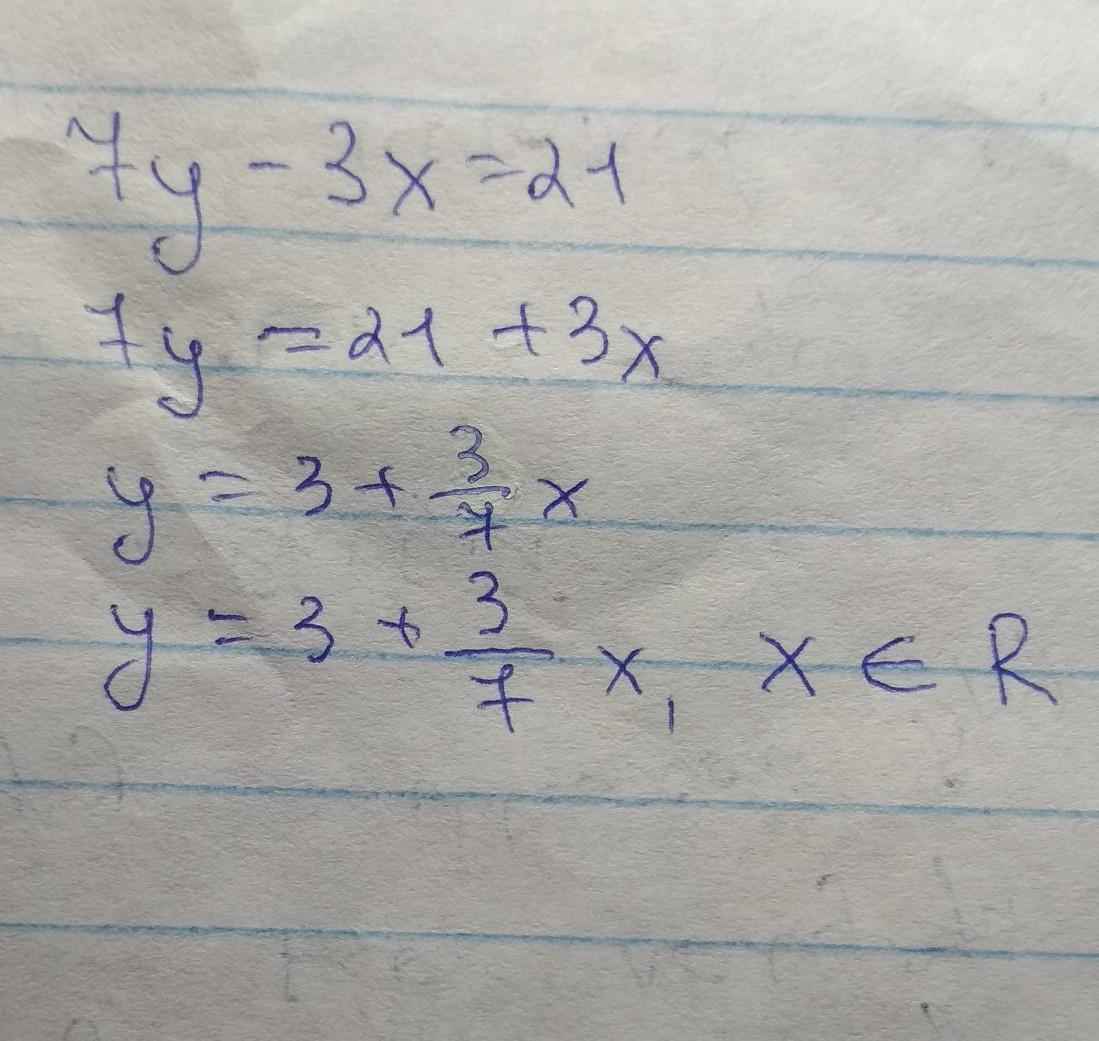 7y - 3x = 21
7y = 21 + 3x
y = 3 + 3/7 x
y = 3 + 3/7 x, x ∈ R